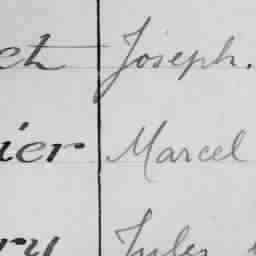 et Joseph.
ier Marcel
ry Jules